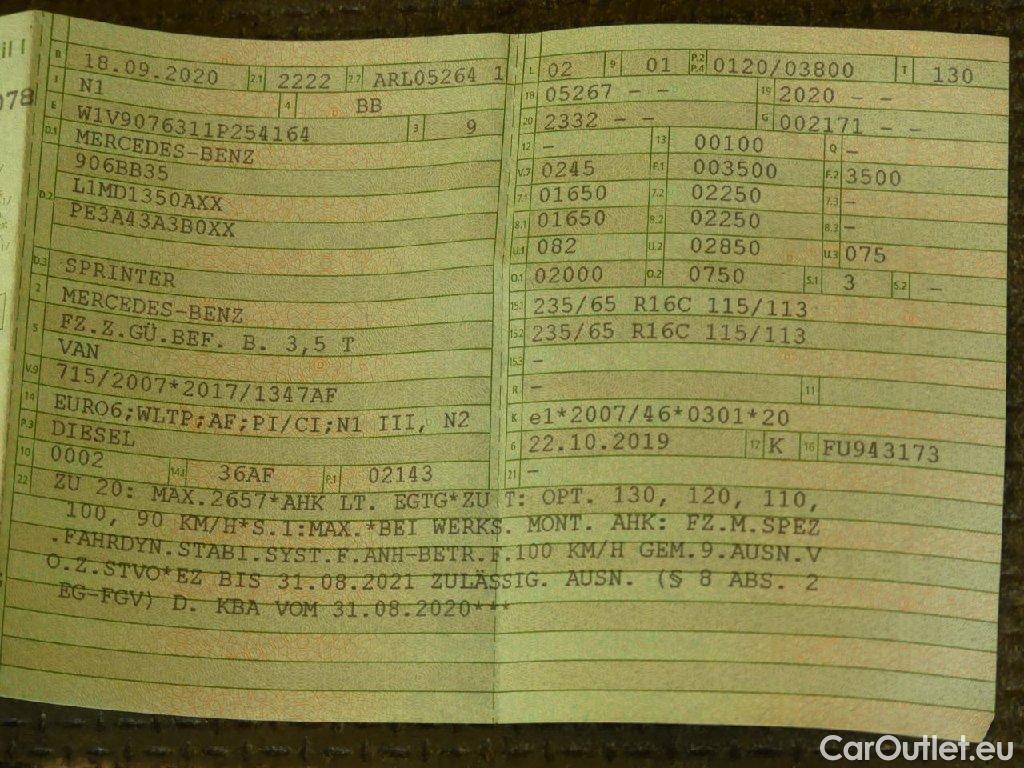 il I
078
B 18.09.2020 2.1 2222 2.2 ARL05264 1
J N1 4 BB
E W1V9076311P254164 3 9
D.1 MERCEDES-BENZ
906BB35
D.2 L1MD1350AXX
PE3A43A3B0XX
D.3 SPRINTER
2 MERCEDES-BENZ
5 FZ.Z.GÜ.BEF. B. 3,5 T
VAN
V.9 715/2007*2017/1347AF
14 EURO6;WLTP;AF;PI/CI;N1 III, N2
P.3 DIESEL
10 0002 14.1 36AF P.1 02143
L 02 9 01 P.2 P.4 0120/03800 T 130
18 05267 - - 19 2020 - -
20 2332 - - G 002171 - -
12 - 13 00100 Q -
V.7 0245 F.1 003500 F.2 3500
7.1 01650 7.2 02250 7.3 -
8.1 01650 8.2 02250 8.3 -
U.1 082 U.2 02850 U.3 075
O.1 02000 O.2 0750 S.1 3 S.2 -
15.1 235/65 R16C 115/113
15.2 235/65 R16C 115/113
15.3 -
R - 11
K e1*2007/46*0301*20
6 22.10.2019 17 K 16 FU943173
21 -
22 ZU 20: MAX.2657*AHK LT. EGTG*ZU T: OPT. 130, 120, 110,
100, 90 KM/H*S.1:MAX.*BEI WERKS. MONT. AHK: FZ.M.SPEZ
.FAHRDYN.STABI.SYST.F.ANH-BETR.F.100 KM/H GEM.9.AUSN.V
O.Z.STVO*EZ BIS 31.08.2021 ZULÄSSIG. AUSN. (§ 8 ABS. 2
EG-FGV) D. KBA VOM 31.08.2020***
CarOutlet.eu